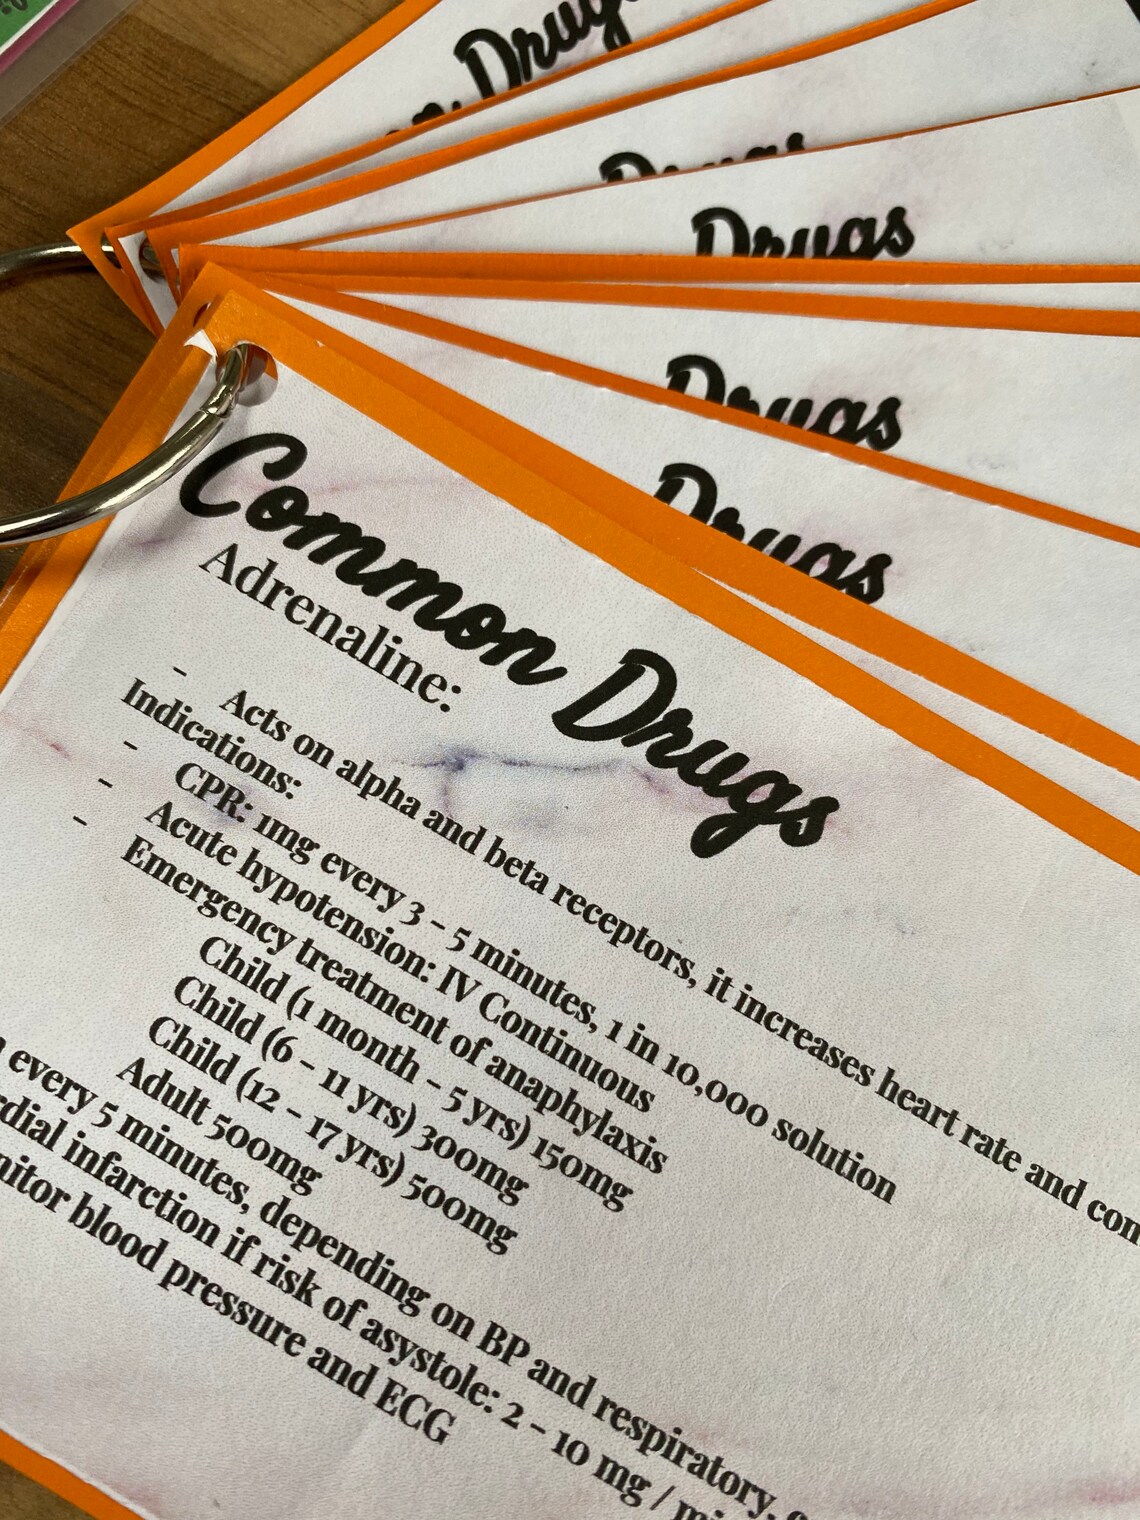 Drugs
Drugs
Drugs
Drugs
Drugs
Common Drugs
Adrenaline:
- Acts on alpha and beta receptors, it increases heart rate and
Indications:
- CPR: 1mg every 3 - 5 minutes, 1 in 10,000 solution
- Acute hypotension: IV Continuous
- Emergency treatment of anaphylaxis
Child (1 month - 5 yrs) 150mg
Child (6 - 11 yrs) 300mg
Child (12 - 17 yrs) 500mg
Adult 500mg
every 5 minutes, depending on BP and respiratory,
infarction if risk of asystole: 2 - 10 mg /
blood pressure and ECG